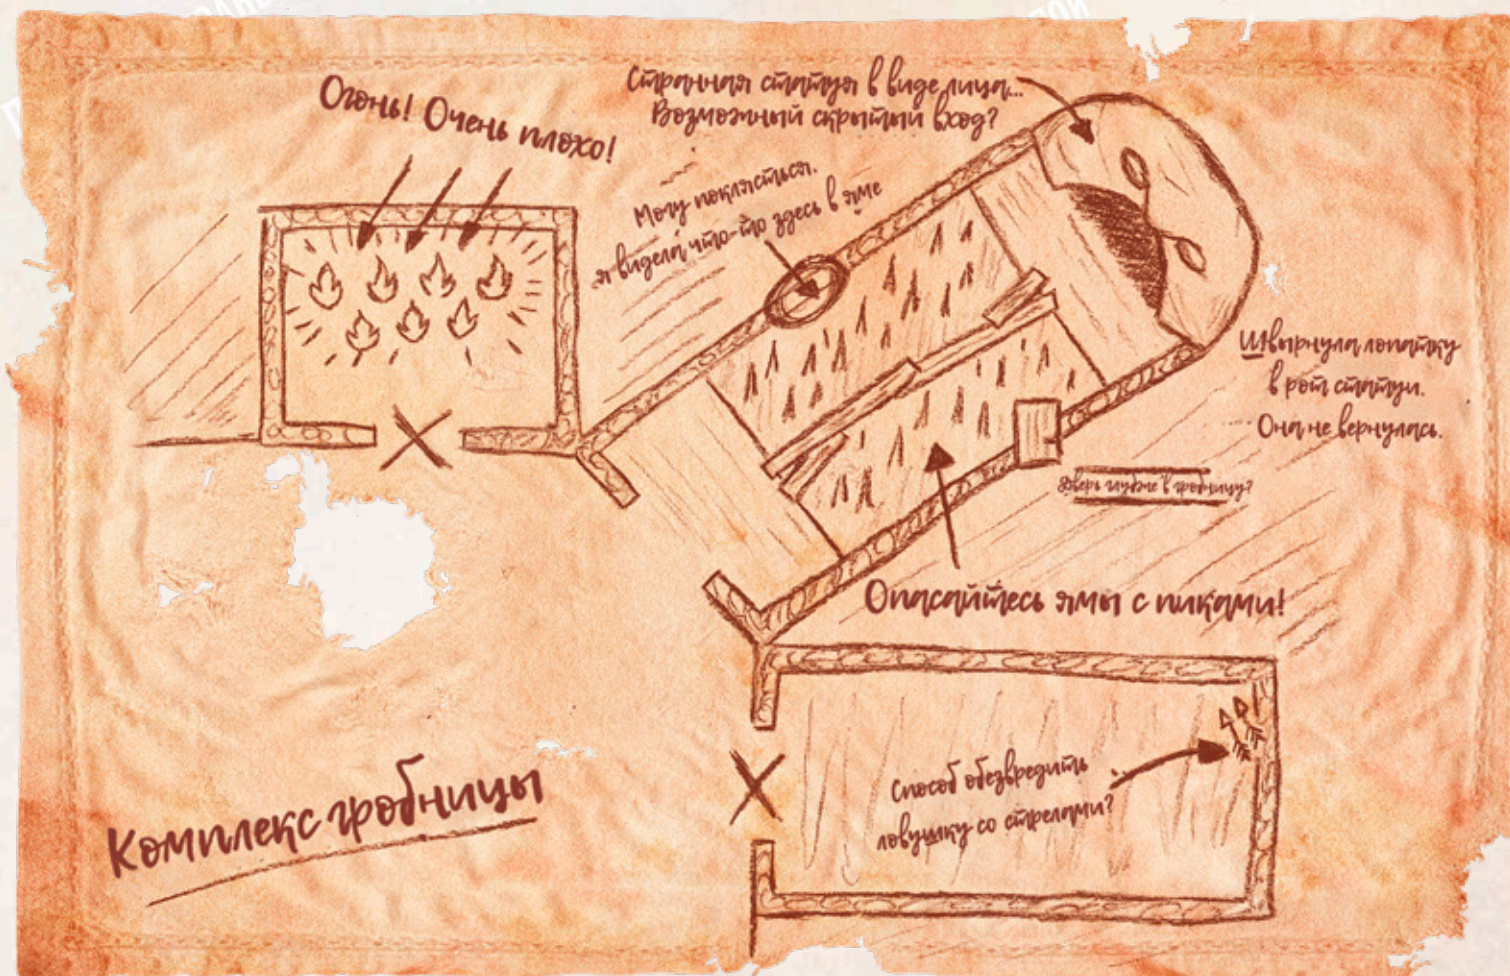 Огонь! Очень плохо!
Странная статуя в виде лица...
Возможный скрытый вход?
Могу поклясться.
я видела что-то здесь в яме
Швырнула лопатку
в рот статуи.
Она не вернулась.
Дверь глубже в гробницу?
Опасайтесь ямы с пиками!
Способ обезвредить
ловушку со стрелами?
Комплекс гробницы